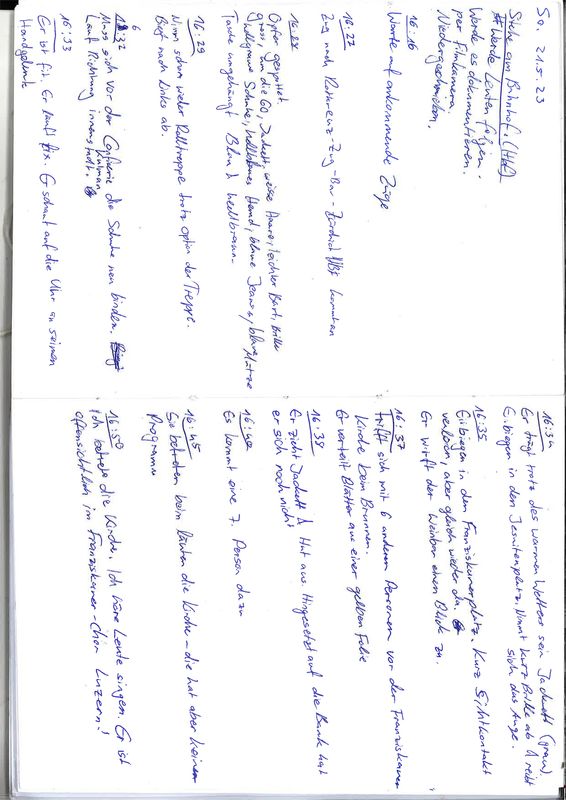 So. 21.5.23
Stehe am Bahnhof (HB)
Werde Leuten folgen.
Werde es dokumentieren.
per Filmkamera
Niedergeschrieben.
16:16
Warte auf ankommende Züge
16:27
Zug nach Rotkreuz-Zug-Baar-Zürich HB kommt an
16:28
Opfer gespottet
gross, um die 60, Jackett, weisse Haare, leichter Bart, Brille
hellgraue Schuhe, hellblaues Hemd, blaue Jeans, blaue Mütze
Tasche umgehängt Blau & hellbraun.
16:29
Nimmt schon wieder Rolltreppe trotz option der Treppe.
Biegt nach Links ab.
16:32
Muss sich vor der Confiserie die Schuhe neu binden.
Lauf Richtung innenstadt.
16:33
Er ist fit. Er läuft fix. Er schaut auf die Uhr an seinem
Handgelenk
16:34
Er trägt trotz des warmen Wetters sein Jackett (grau)
Er biegen in den Jesuitenplatz. Nimmt kurz Brille ab & reibt
sich das Auge.
16:35
Einbiegen in den Franziskanerplatz. Kurz Sichtkontakt
verloren, aber gleich wieder da.
Er wirft der Weinbar einen Blick zu.
16:37
trifft sich mit 6 anderen Personen vor der Franziskaner
Kirche beim Brunnen.
Er verteilt Blätter aus einer gelben Folie
16:38
Er zieht Jackett & Hut aus. Hingesetzt auf die Bank hat
er sich noch nicht
16:40
Es kommt eine 7. Person dazu
16:45
Sie betreten beim läuten die Kirche - die hat aber keinen
Programm
16:50
Ich betrete die Kirche. Ich höre Leute singen. Er ist
offensichtlich im Franziskaner-Chor Luzern!